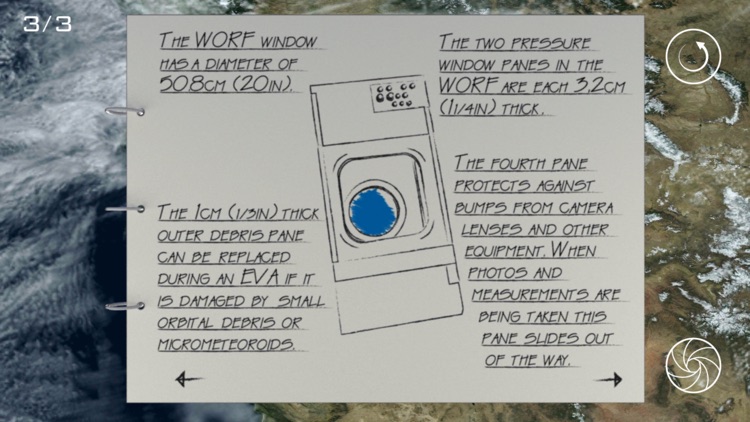 3/3
THE WORF WINDOW
HAS A DIAMETER OF
50.8CM (20IN).
THE 1CM (1/3IN) THICK
OUTER DEBRIS PANE
CAN BE REPLACED
DURING AN EVA IF IT
IS DAMAGED BY SMALL
ORBITAL DEBRIS OR
MICROMETEOROIDS.
THE TWO PRESSURE
WINDOW PANES IN THE
WORF ARE EACH 3.2CM
(1 1/4IN) THICK.
THE FOURTH PANE
PROTECTS AGAINST
BUMPS FROM CAMERA
LENSES AND OTHER
EQUIPMENT. WHEN
PHOTOS AND
MEASUREMENTS ARE
BEING TAKEN THIS
PANE SLIDES OUT
OF THE WAY.